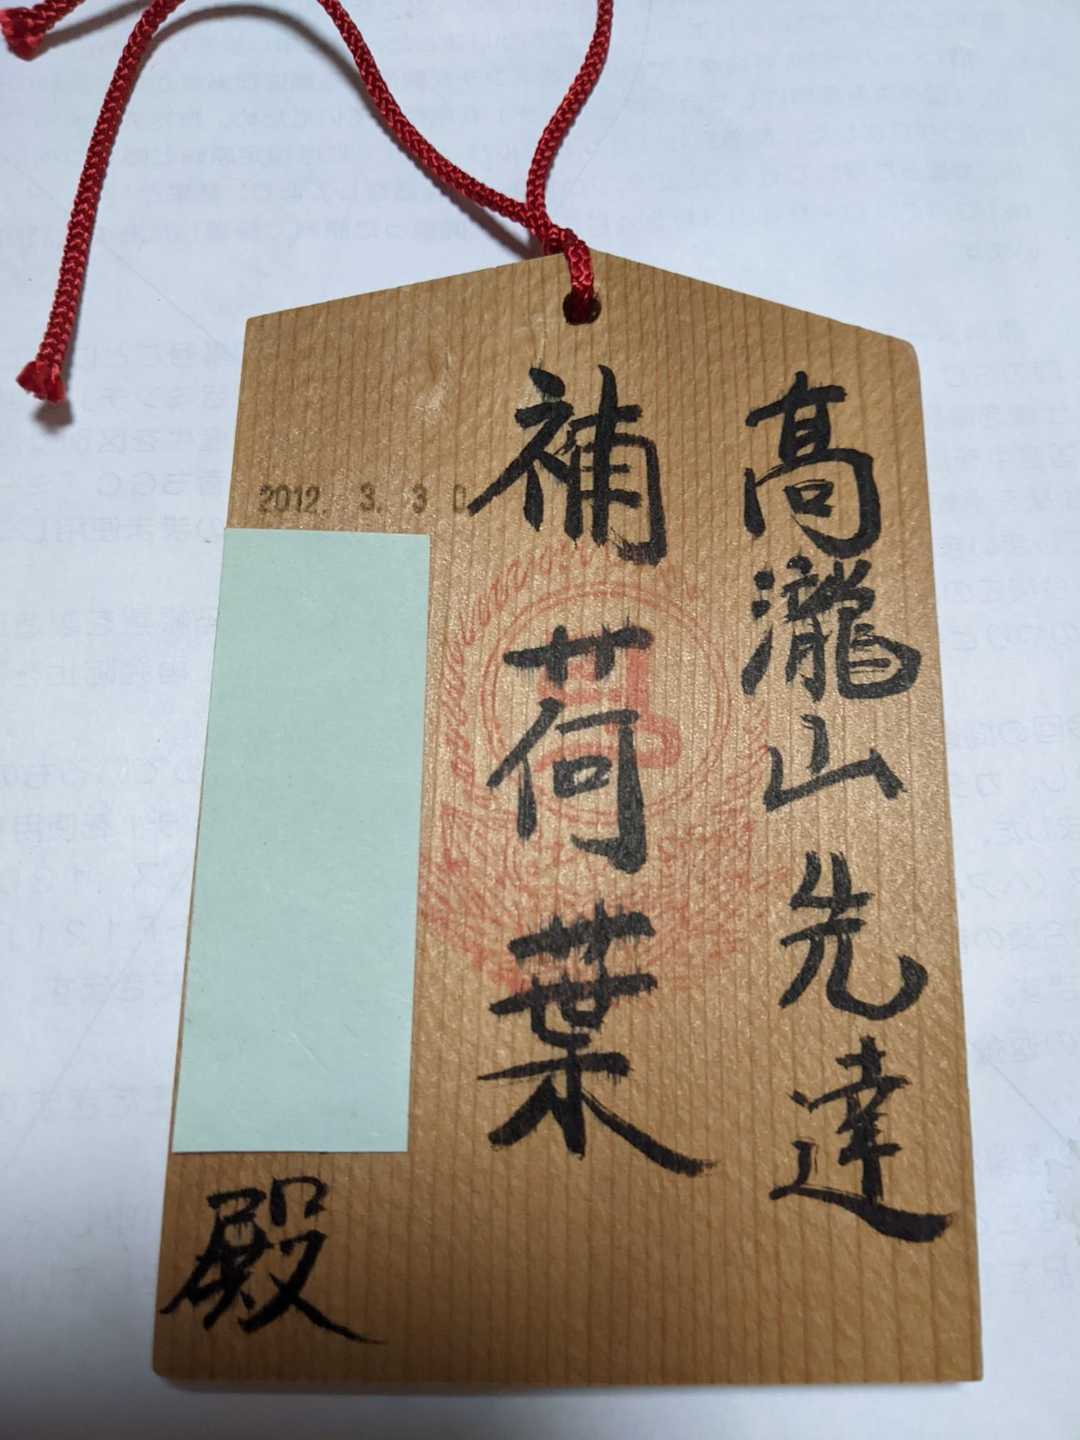 高瀧山先達
補荷葉
2012. 3. 30
殿